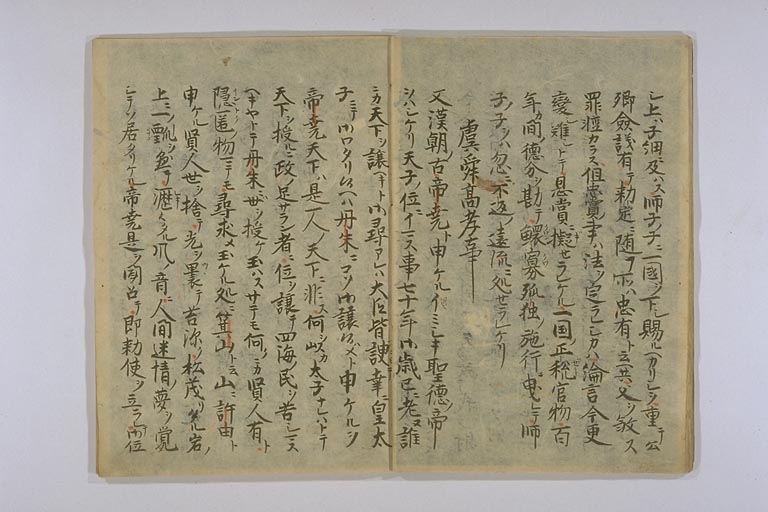 シ上ハ子細ニ及ハス師子ノ子ニ一國ヲ下シ賜ハリケレシ重テ公
卿僉議有テ勅定ニ随フ所ハ忠有ト云共父ヲ殺ス
罪軽カラス但忠賞ノ事ハ法ヲ定ランカハ綸言今更
變シ難シトテ恩賞ニ擬セラレケル一国ノ正税官物百
年カ間徳分ヲ勘テ鰥寡孤独ノ施行ニ曳レテ師
子ノ子ヲハ忽ニ不返ノ遠流ニ処セラレケリ
虞舜高孝事
又漢朝ノ古帝堯ト申ケルイミシキ聖徳ノ帝
シハシケリ天子ノ位イニス事七十年御歳已ニ老ヌ誰
ニカ天下ヲ譲ヘキト御尋アレハ大臣皆諛テ幸ニ皇太
子ニテ御ワタリ候ハ丹朱ニコソ御譲候ハメト申ケルヲ
帝堯天下ハ是一人ノ天下ニ非ス何ヲ以カ太子ナレハトテ
天下ヲ授ルニ政ノ足サラン者ニ位ヲ譲テ四海ノ民ヲ苦シムヘ
ヘキヤトテ丹朱ニ世ヲ授ケ玉ハスサテモ何ニカ賢人有ト
隠遁ノ物ニテモ尋求メ玉ケル処ニ箕山ト云山ニ許由ト
申ケル賢人世ヲ捨テ光ヲ裹テ苔深ク松茂リタル岩ノ
上ニ一瓢ヲ懸テ瀝々タル風ノ音ニ人間迷情ノ夢ヲ覚
シテソ居タリケル帝堯是ヲ聞召テ即勅使ヲ立テ御位